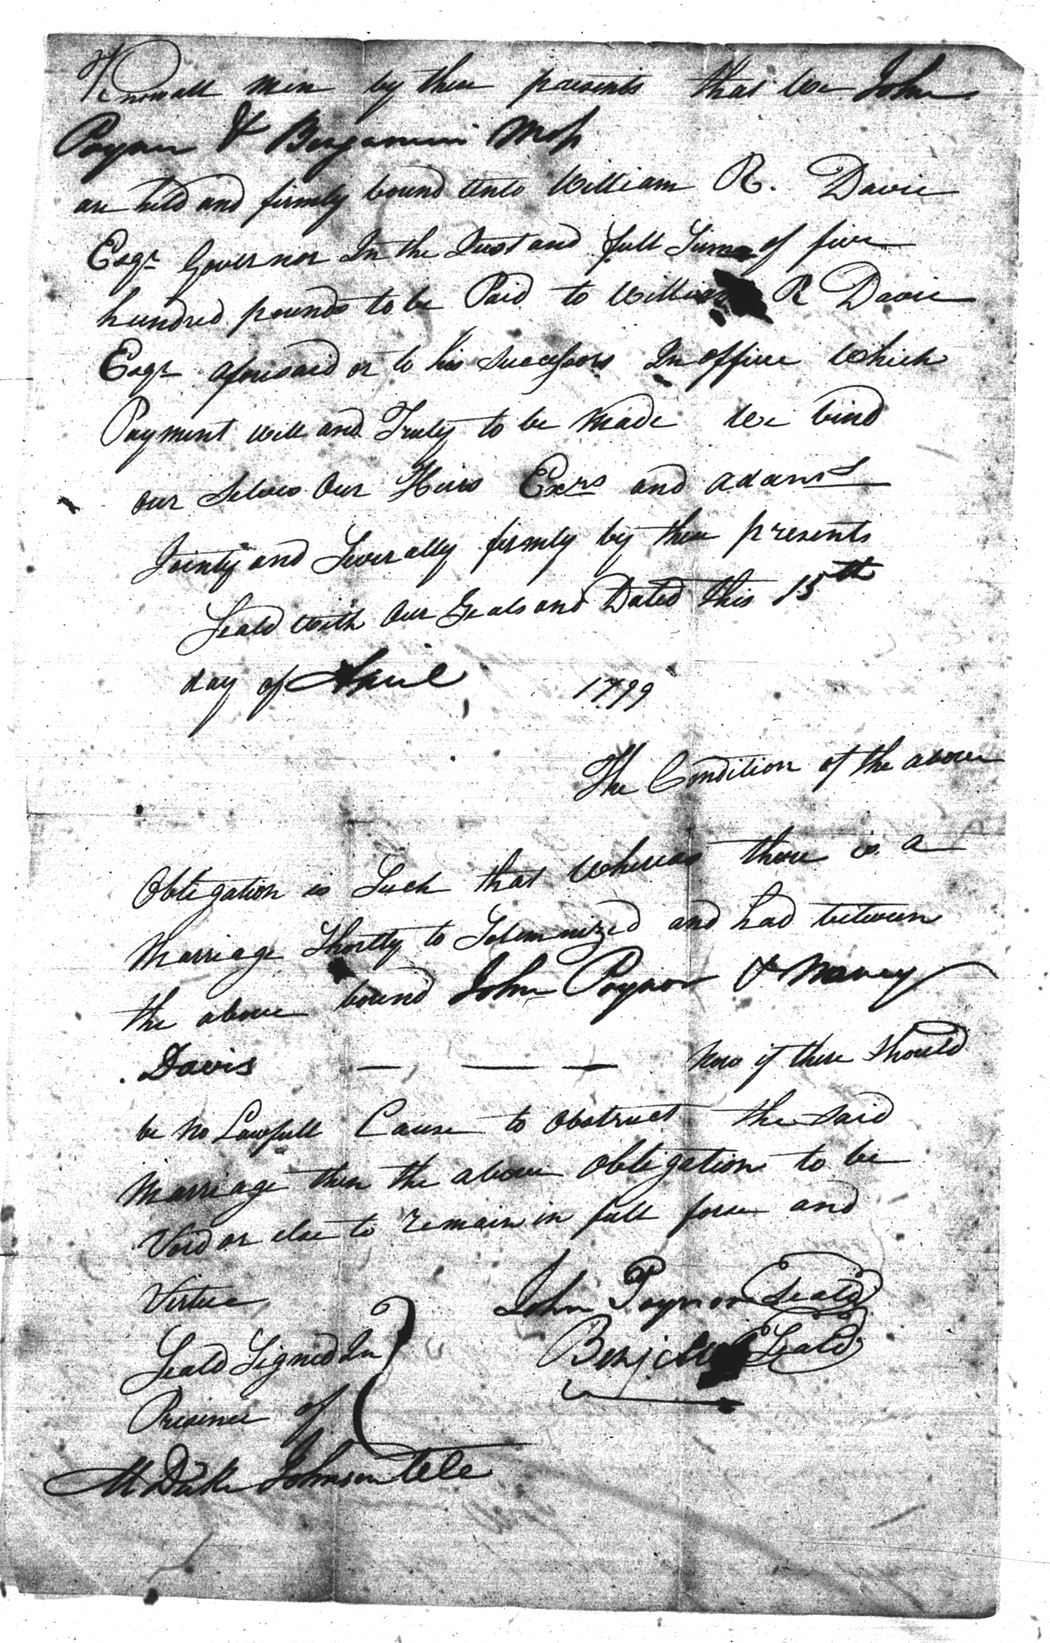 Know all men by these presents that We John
Poynor & Benjamin Moss
are held and firmly bound unto William R. Davie
Esqr Governor In the Just and full Sum of five
hundred pounds to be Paid to William R Davie
Esqr aforesaid or to his Successors In office which
Payment well and Truly to be made We bind
our Selves Our Heirs Exrs and adams
Jointy and Severally firmly by these presents
Seald with Our Seals and Dated this 15th
day of April 1799
The Condition of the above
Obligation is Such that Whereas there is a
Marriage Shortly to Solemnized and had between
the above bound John Poynor & Nancy
Davis — — — Now if there Should
be No Lawfull Cause to obstruct the said
Marriage then the above obligation to be
Void or else to remain in full force and
Virtue
John Poynor Seald
Benj Seald
Seald Signed In
Presence of
M Duke Johnson